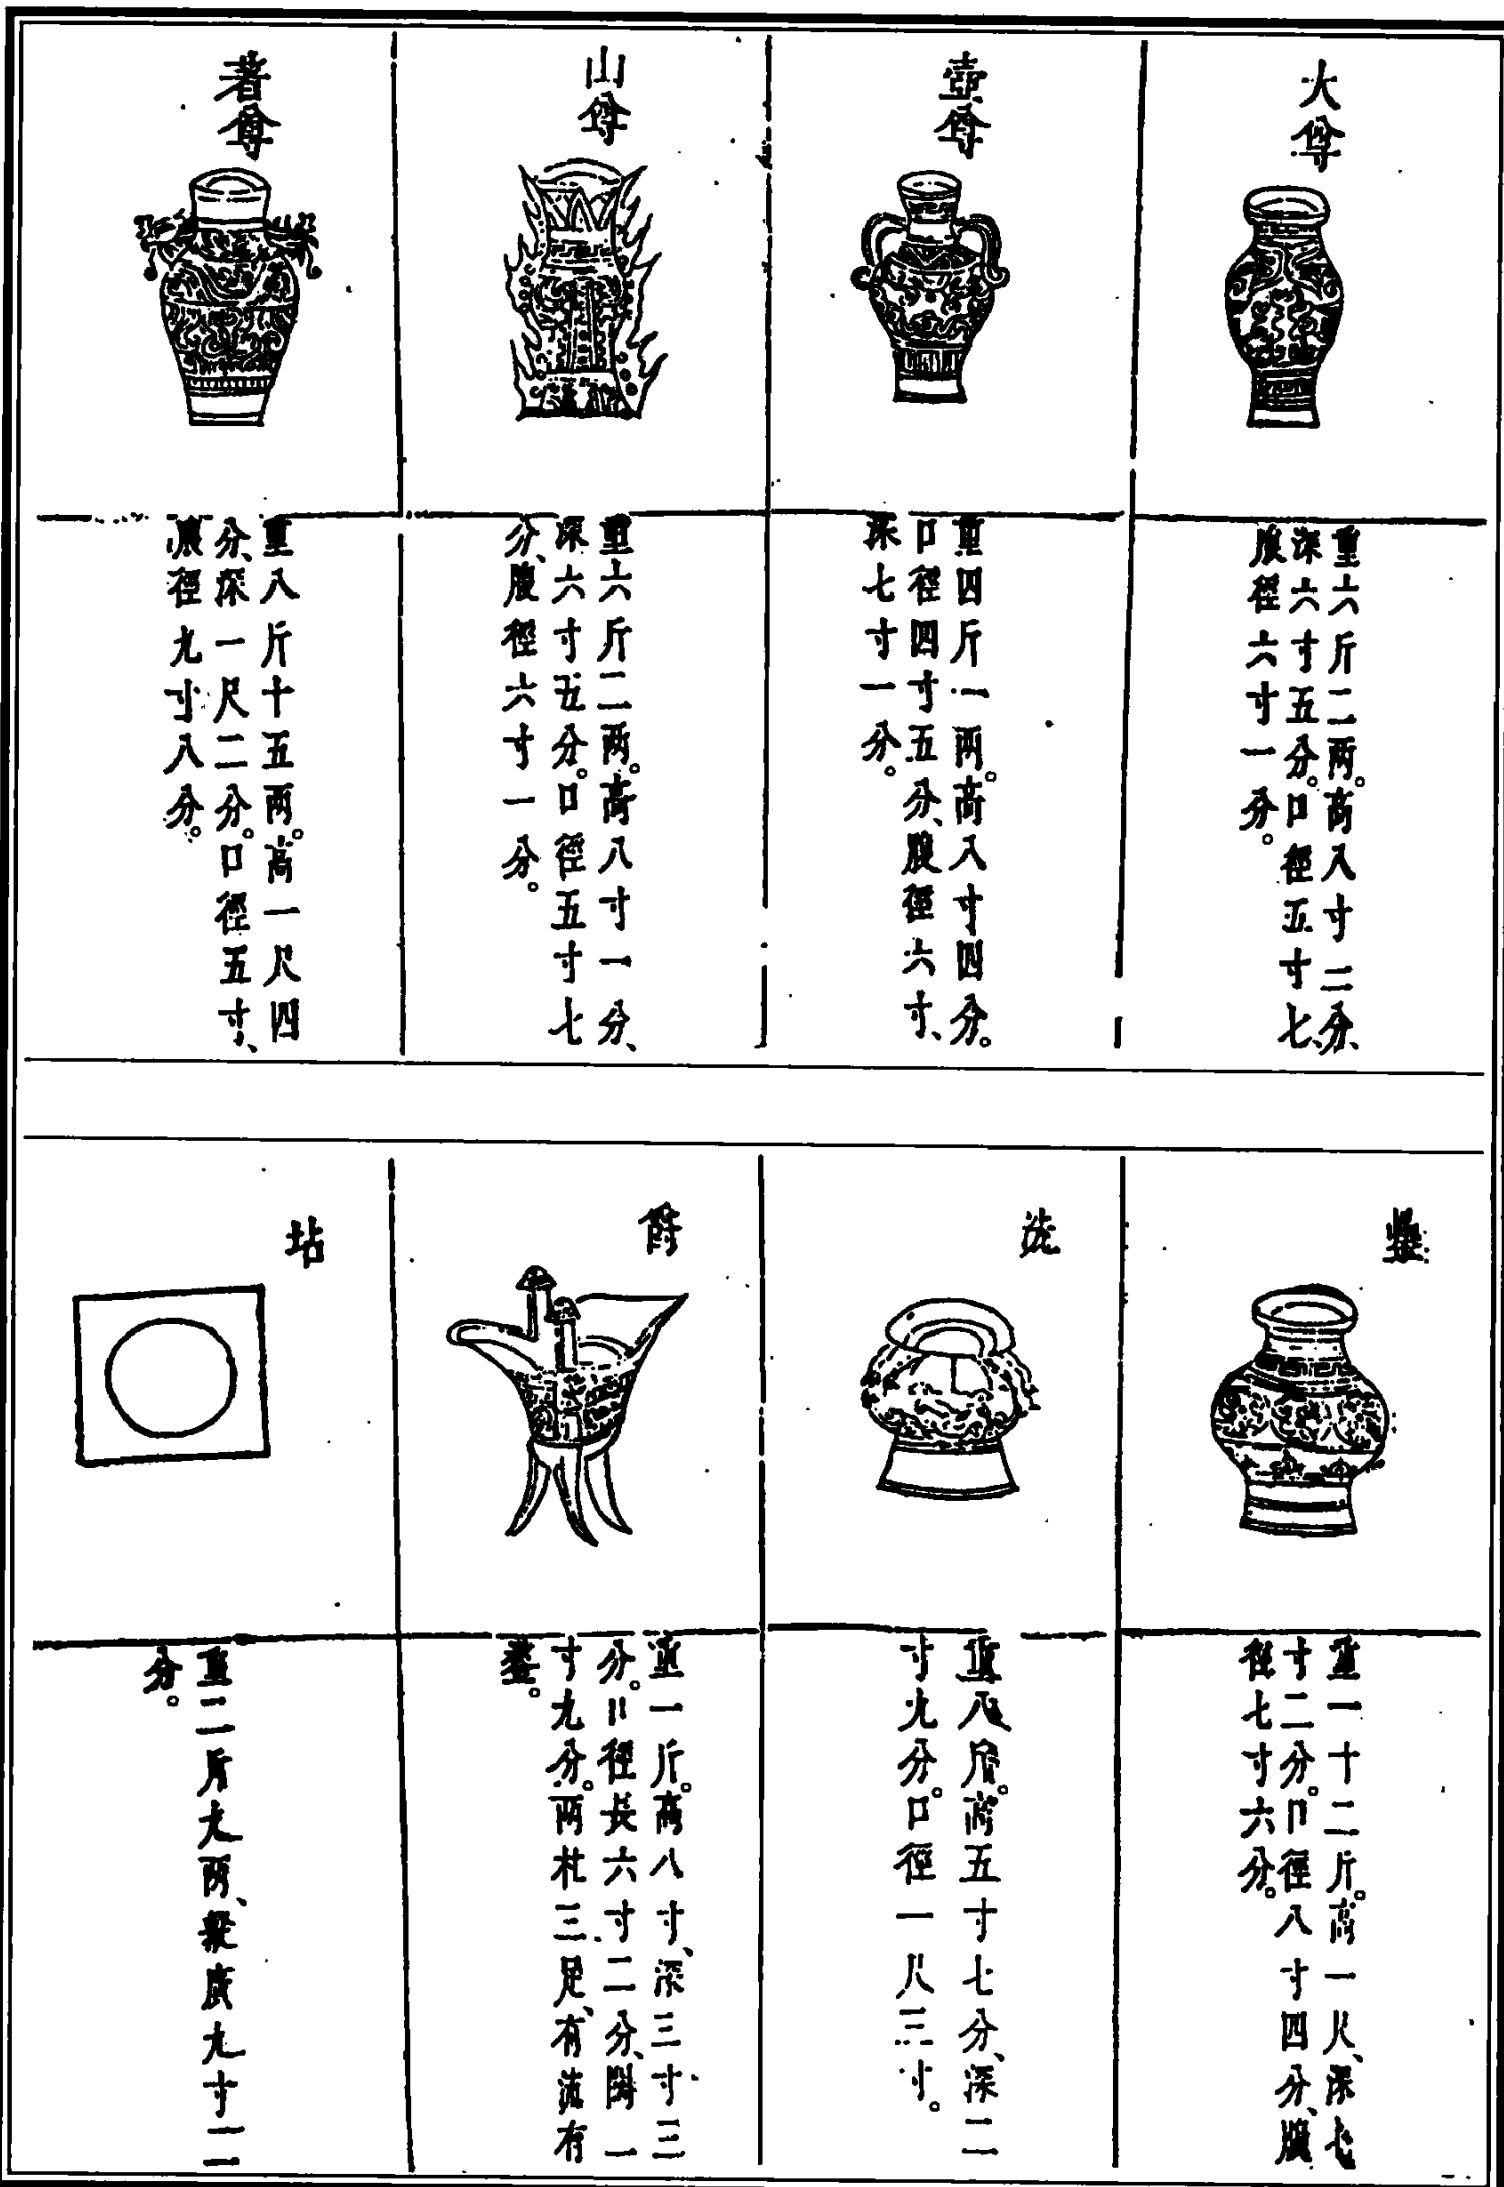 大尊
重六斤二两。高八寸二分、
深六寸五分。口徑五寸七、
腹徑六寸一分。
壺尊
重四斤一两。高八寸四分。
口徑四寸五分、腹徑六寸、
深七寸一分。
山尊
重六斤二两。高八寸一分、
深六寸五分。口徑五寸七
分、腹徑六寸一分。
著尊
重八斤十五两。高一尺四
分、深一尺二分。口徑五寸、
腹徑九寸八分。
罍
重一十二斤。高一尺、深七
寸二分。口徑八寸四分、腹
徑七寸六分。
洗
重八斤。高五寸七分、深二
寸九分。口徑一尺三寸。
爵
重一斤。高八寸、深三寸三
分。口徑長六寸二分、闊一
寸九分。两柱三足、有流有
鋬。
坫
重二斤九两、縱廣九寸二
分。